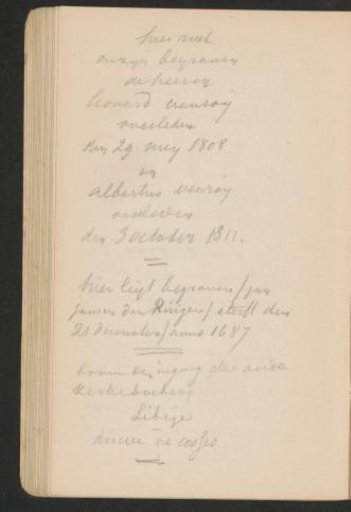 hier rust
begraven
de heeren
leonard venroy
overleden
den 29 mey 1808
en
albertus venroy
overleden
den 3 october 1811.
hier leyt begraven / jan
jansen den / sterft den
21 december / anno 1687
boven de ingang
Kerkeboeken
discere ne cesses